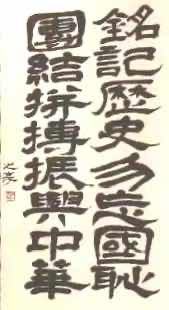 銘記歷史勿忘國恥
團結拼搏振興中華